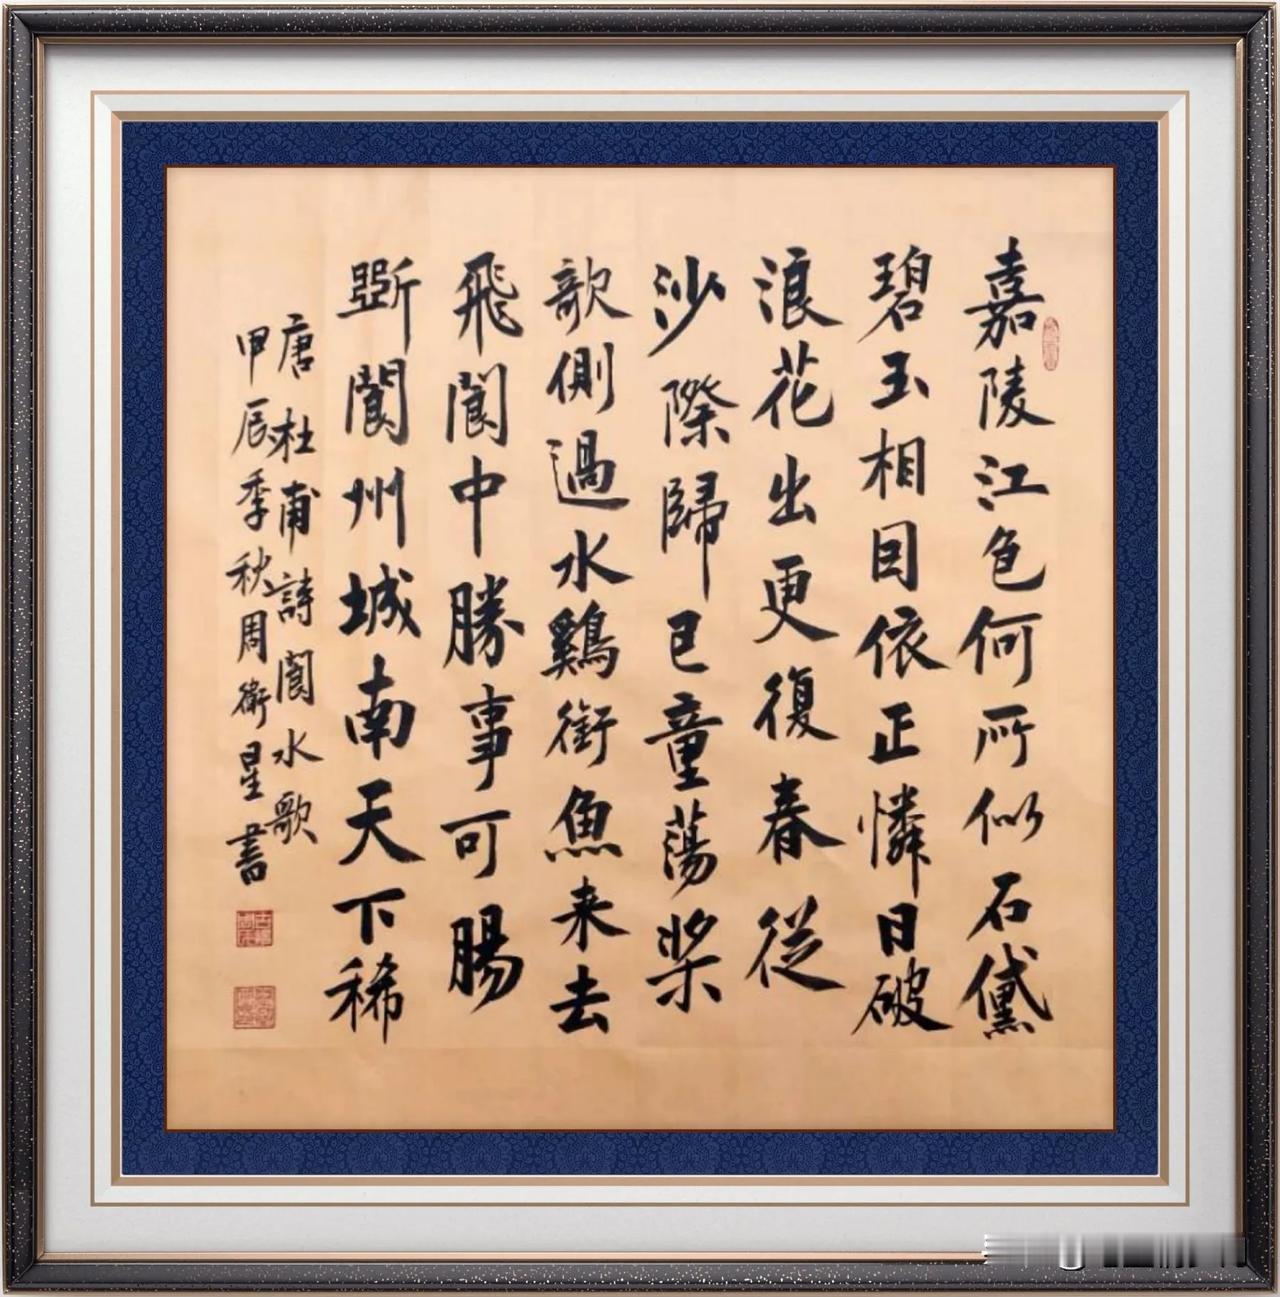 嘉陵江色何所似石黛
碧玉相因依正憐日破
浪花出更復春從
沙際歸巴童蕩槳
歌側過水鷄銜魚来去
飛閬中勝事可腸
斷閬州城南天下稀
唐杜甫詩閬水歌
甲辰季秋周衛星書